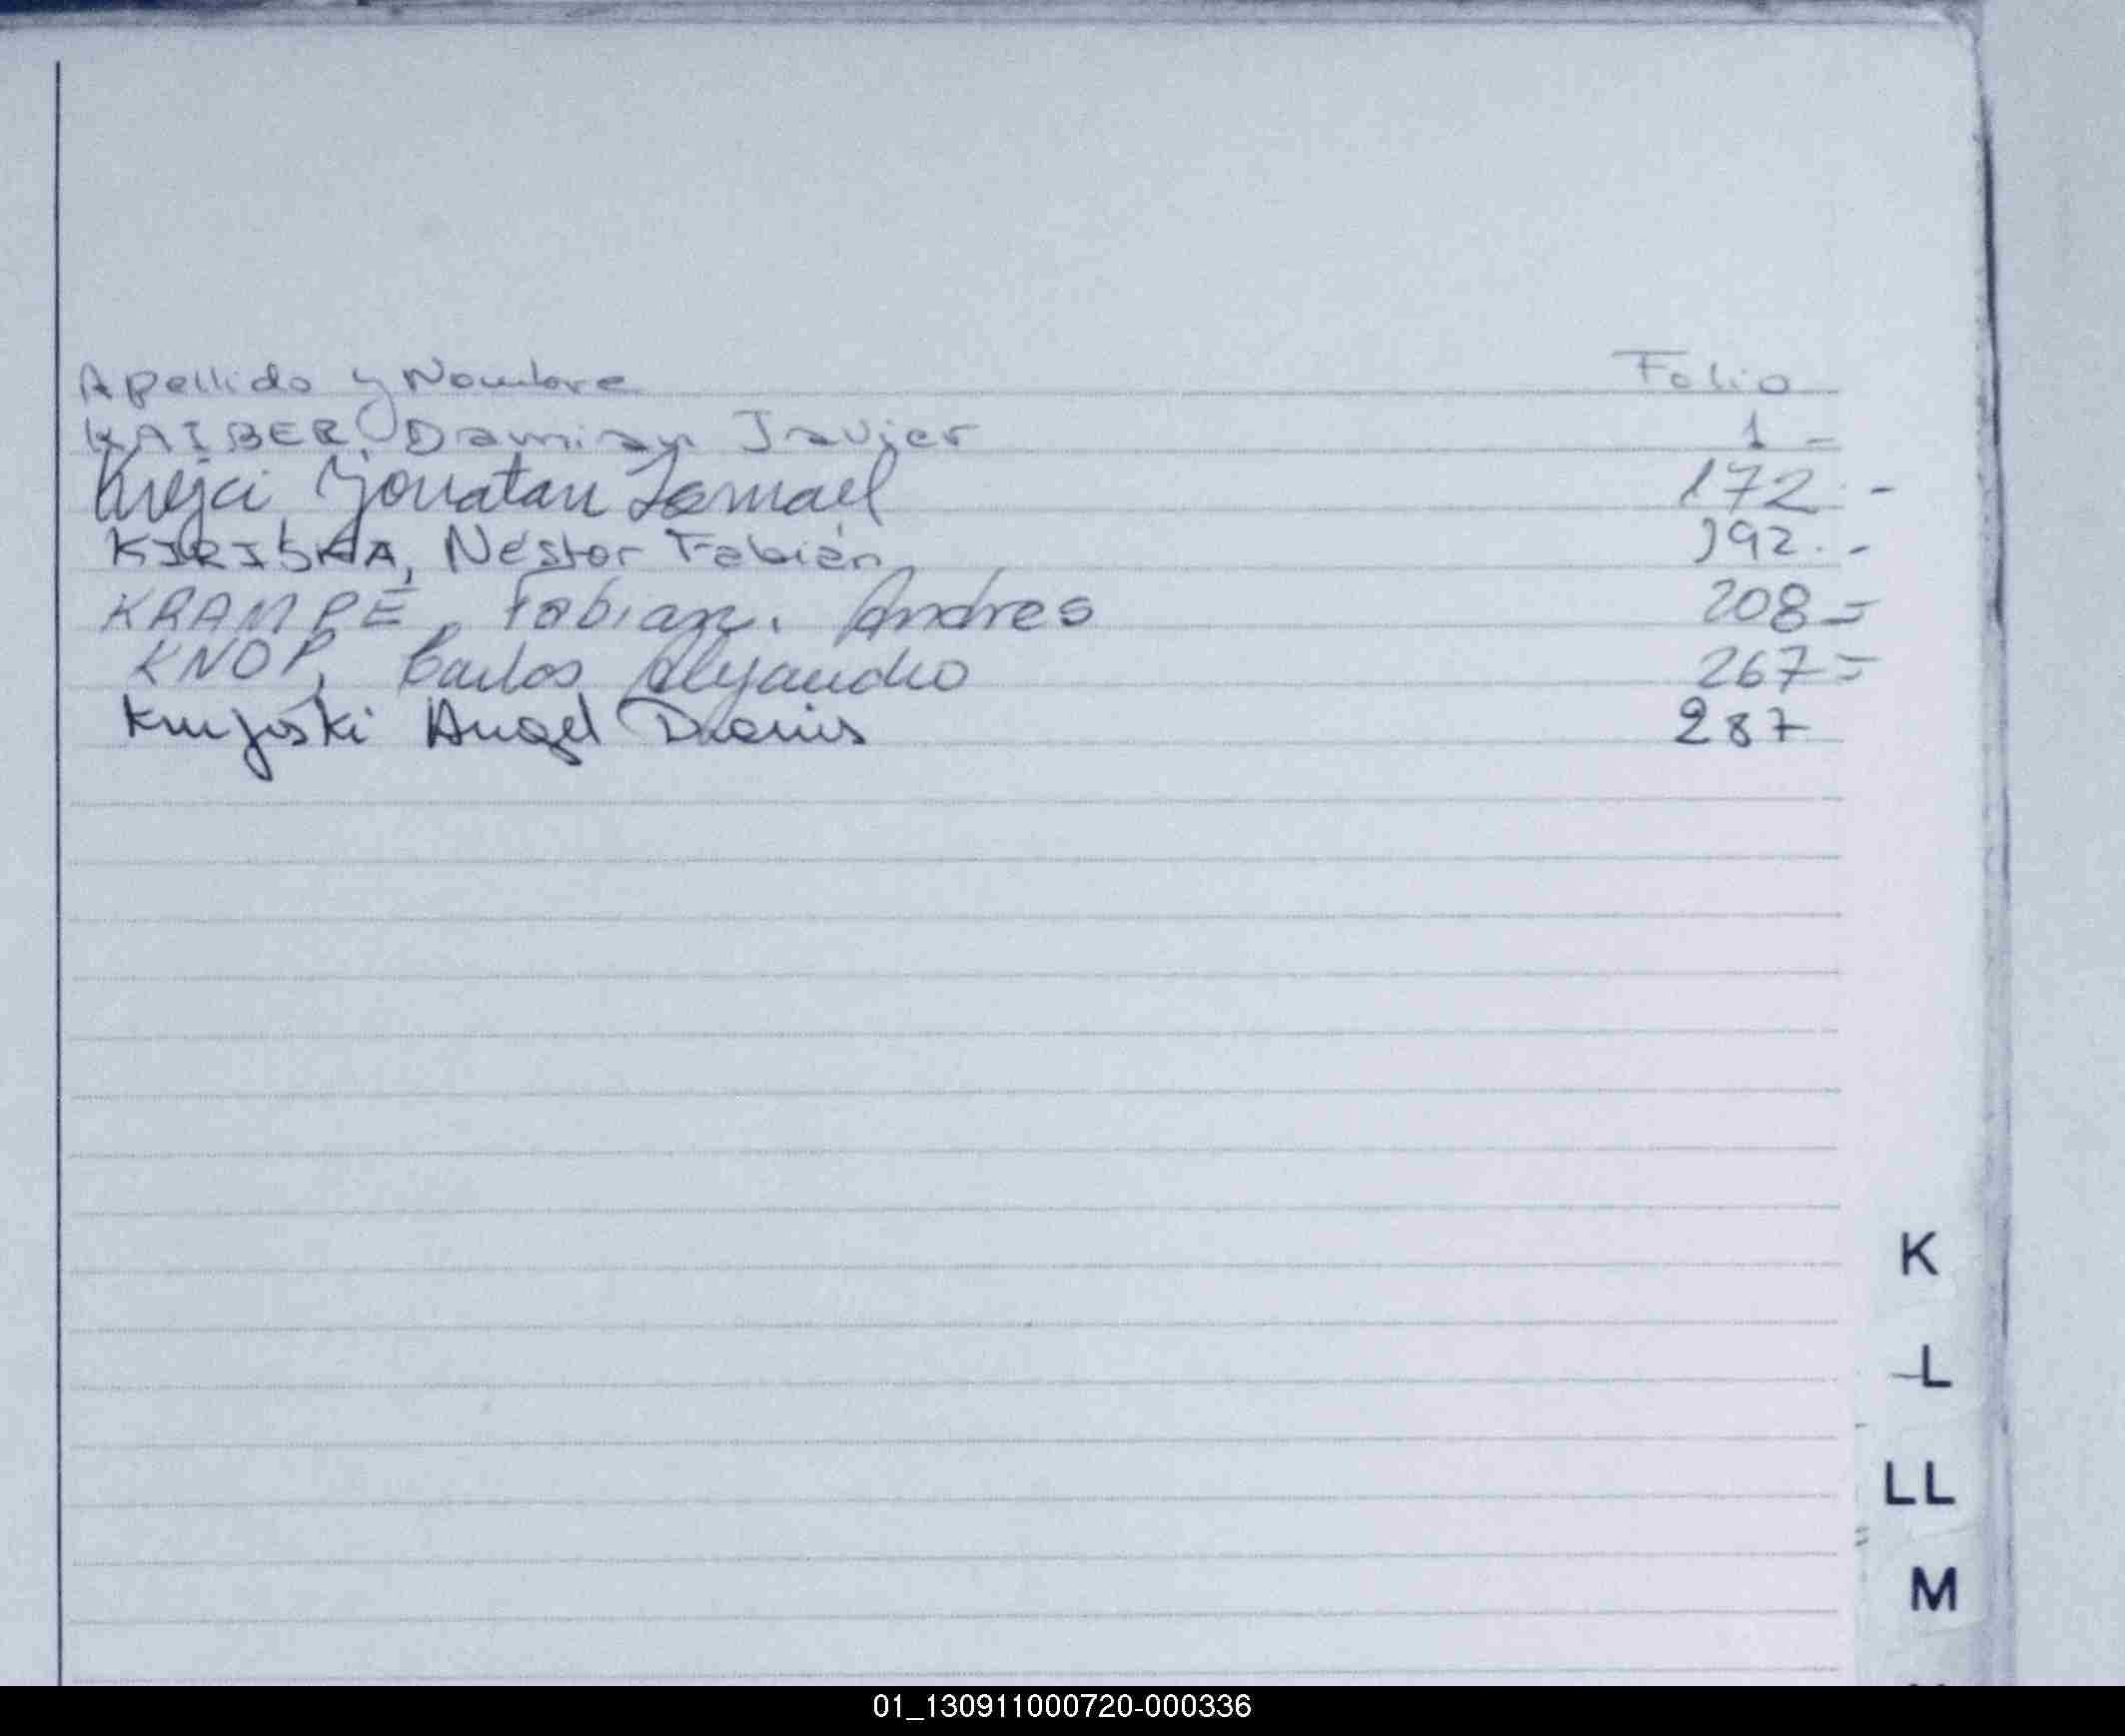 Apellido y Nombre Folio
KAIBER, Damian Javier 1 -
Krejci Jonatan Ismael 172.-
KIRISKA, Néstor Fabián 192.-
KRAMPE, Fabian. Andres 208=
KNOP, Carlos Alejandro 267=
Angel Denis 287
K
L
LL
M
01_130911000720-000336